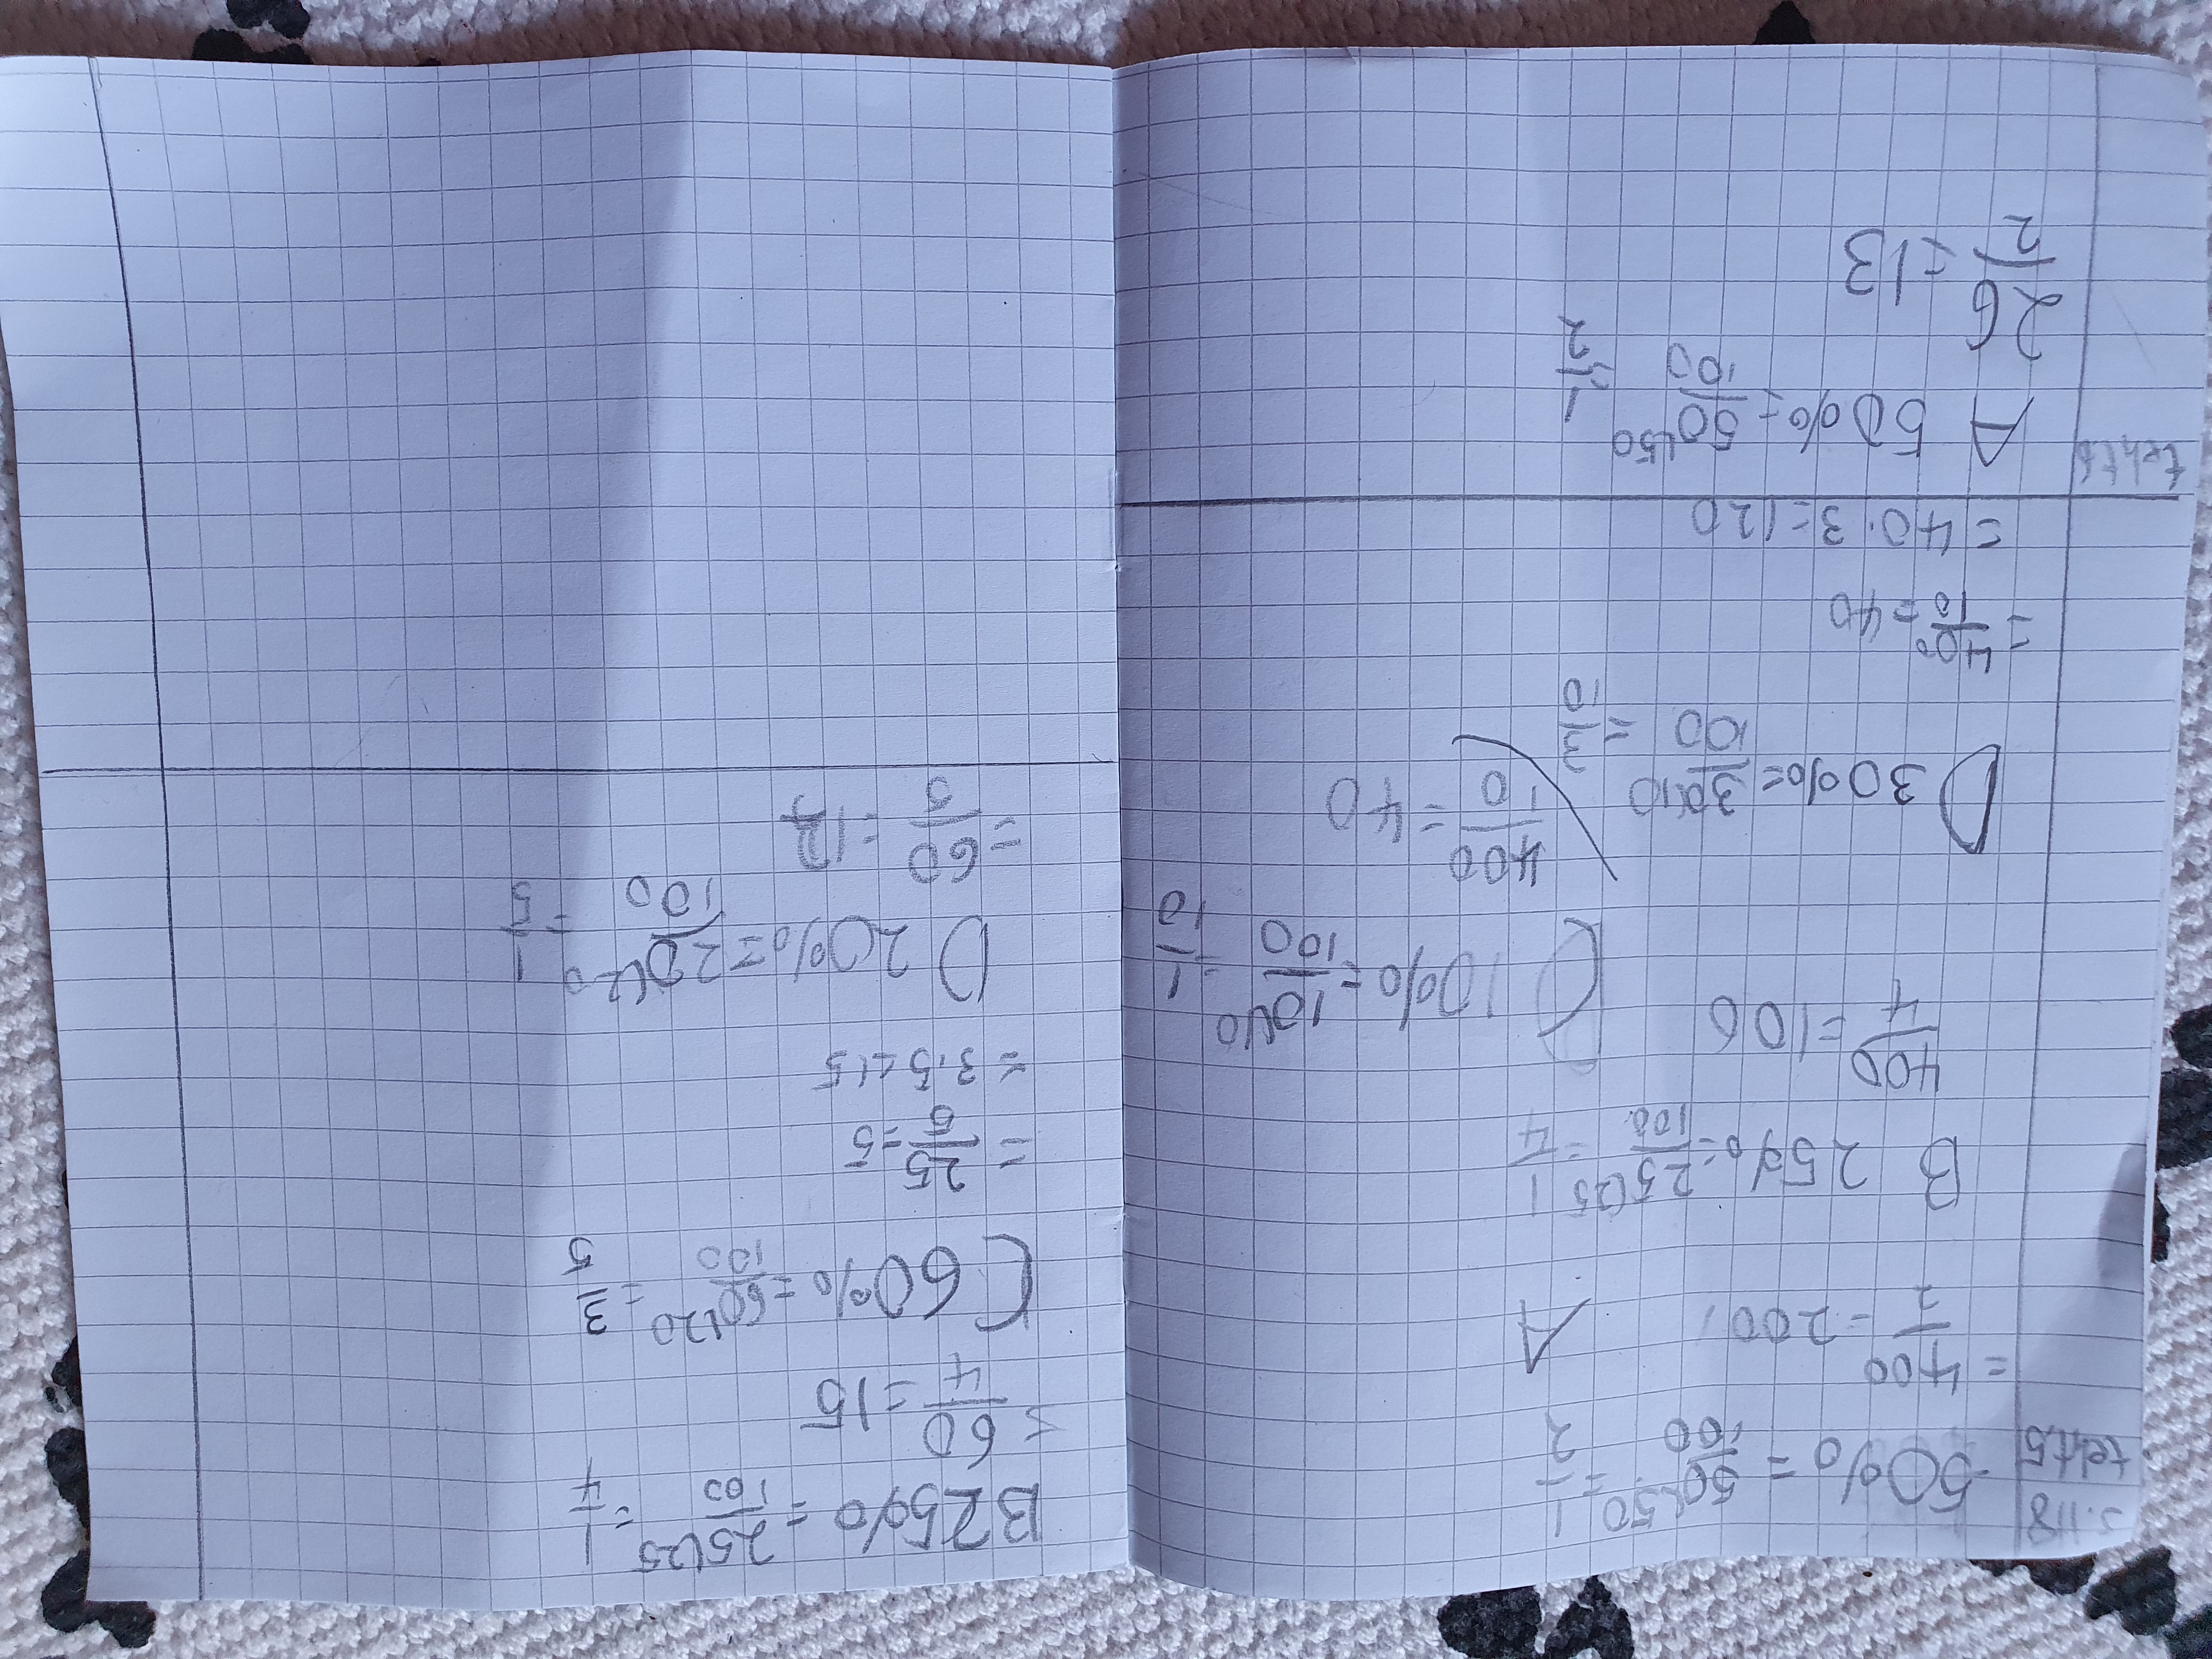 s.118
teht.5
50% = 50(50/100 = 1/2
= 400/2 = 200
A
B 25% = 25(25/100 = 1/4
400/4 = 100
C 10% = 10(10/100 = 1/10
400/10 = 40
D 30% = 30(10/100 = 3/10
= 400/10 = 40
= 40·3=120
teht6
A 50% = 50(50/100 = 1/2
26/2 = 13
B 25% = 25(25/100 = 1/4
= 60/4 = 15
C 60% = 60(20/100 = 3/5
= 25/5 = 5
= 3·5=15
D 20% = 20(20/100 = 1/5
= 60/5 = 12